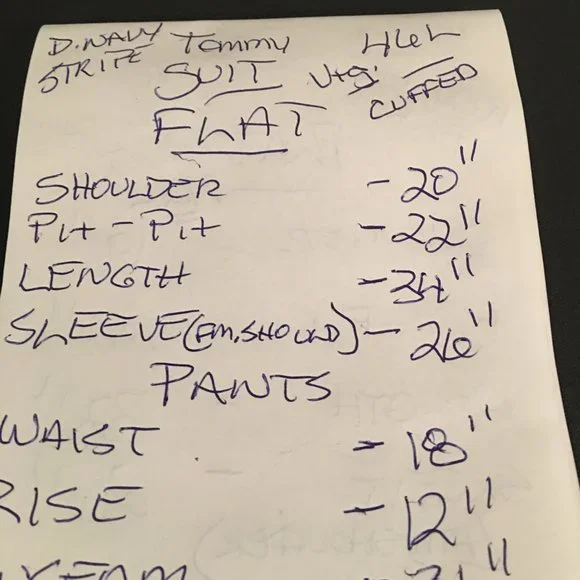 D. NAVY Tommy 46L
STRIPE SUIT Vtg. CUFFED
FLAT
SHOULDER - 20"
Pit - Pit - 22"
LENGTH - 34"
SLEEVE (FM. SHOULD) - 26"
PANTS
WAIST - 18"
RISE - 12"